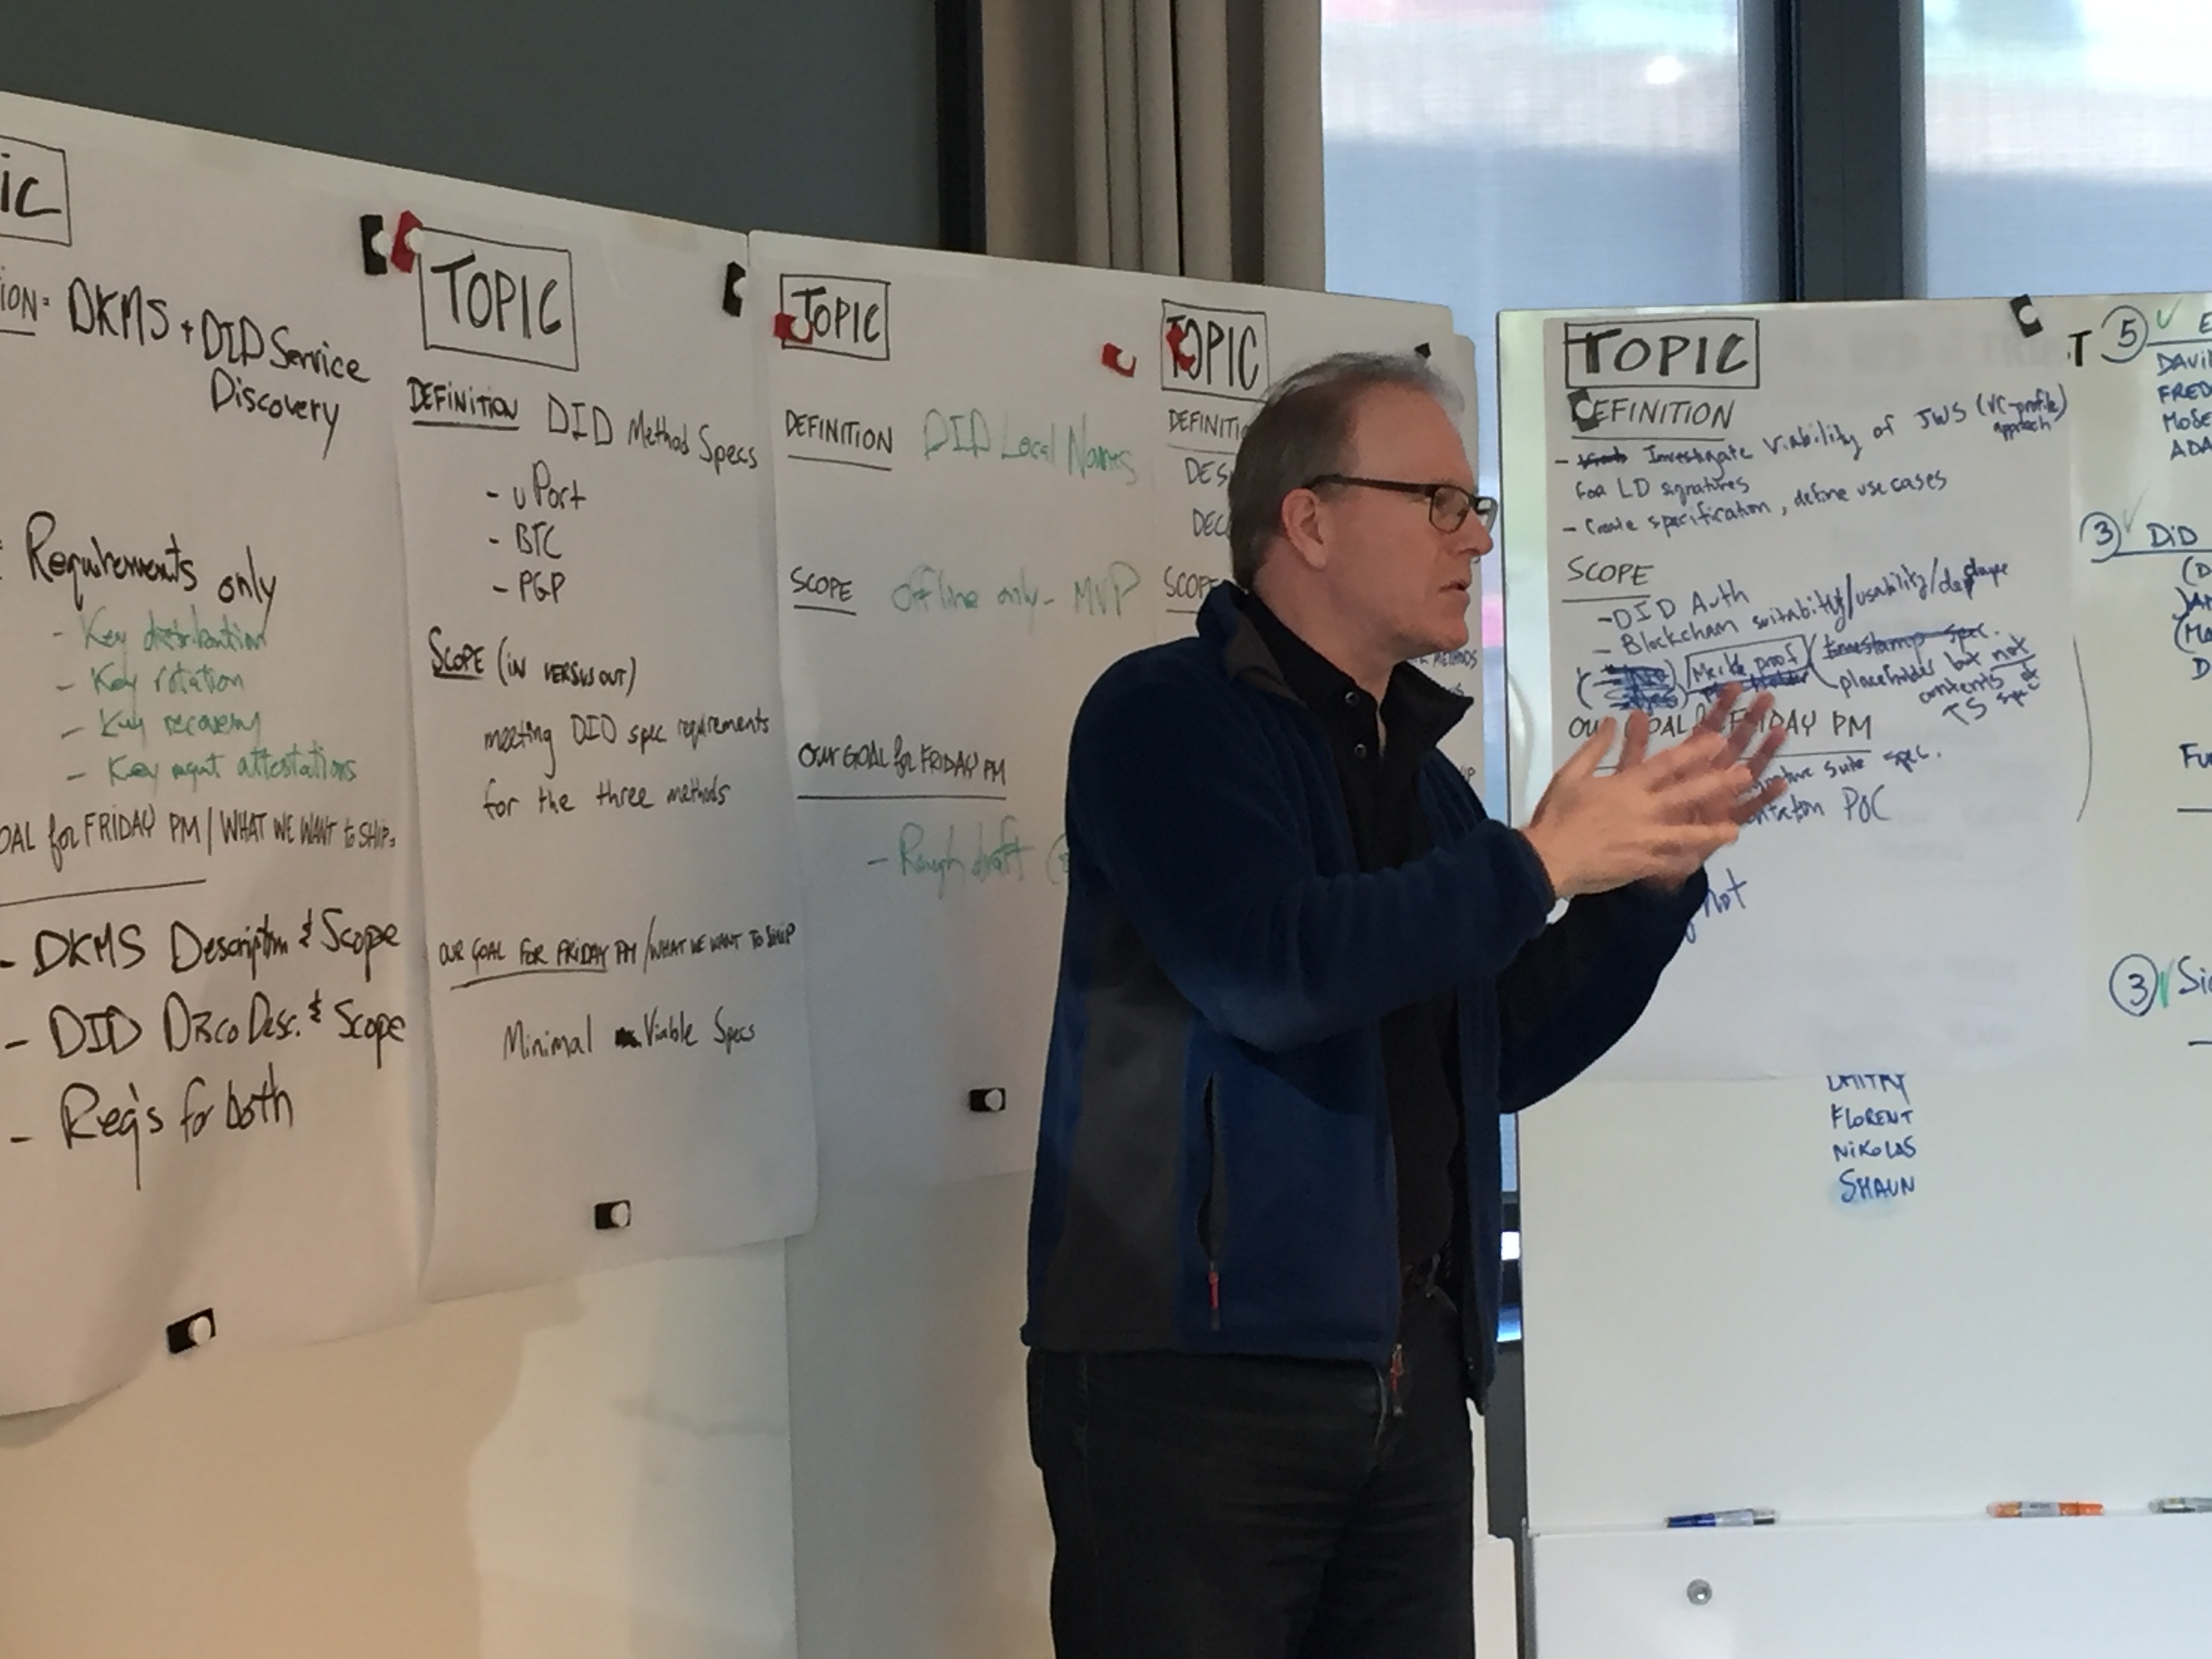 IC
ION: DKMS + DID Service
Discovery
: Requirements only
- Key distribution
- Key rotation
- Key recovery
- Key mgmt attestations
OAL for FRIDAY PM / WHAT WE WANT to SHIP:
- DKMS Description & Scope
- DID Disco Desc. & Scope
- Req's for both
TOPIC
DEFINITION DID Method Specs
- uPort
- BTC
- PGP
SCOPE (IN VERSUS OUT)
meeting DID spec requirements
for the three methods
OUR GOAL FOR FRIDAY PM / WHAT WE WANT TO SHIP
Minimal Viable Specs
TOPIC
DEFINITION DID Local Names
SCOPE Offline only - MVP
OUR GOAL for FRIDAY PM
- Rough draft
TOPIC
DEFINITI
DES
DEC
SCOPE
METHODS
TOPIC
DEFINITION
- Investigate Viability of JWS (VC-profile)
approach
for LD signatures
- Create specification, define use cases
SCOPE
- DID Auth
- Blockchain suitability/usability/
Merkle proof
timestamp spec.
placeholder but not
contents of
TS spec
OU GOAL FRIDAY PM
nature suite spec.
ntation POC
not
DMITRY
FLORENT
NIKOLAS
SHAUN
T
5 E
DAVI
FRED
MOSE
ADA
3 DID
(D
JAN
(Ma
D
FU
3 Si